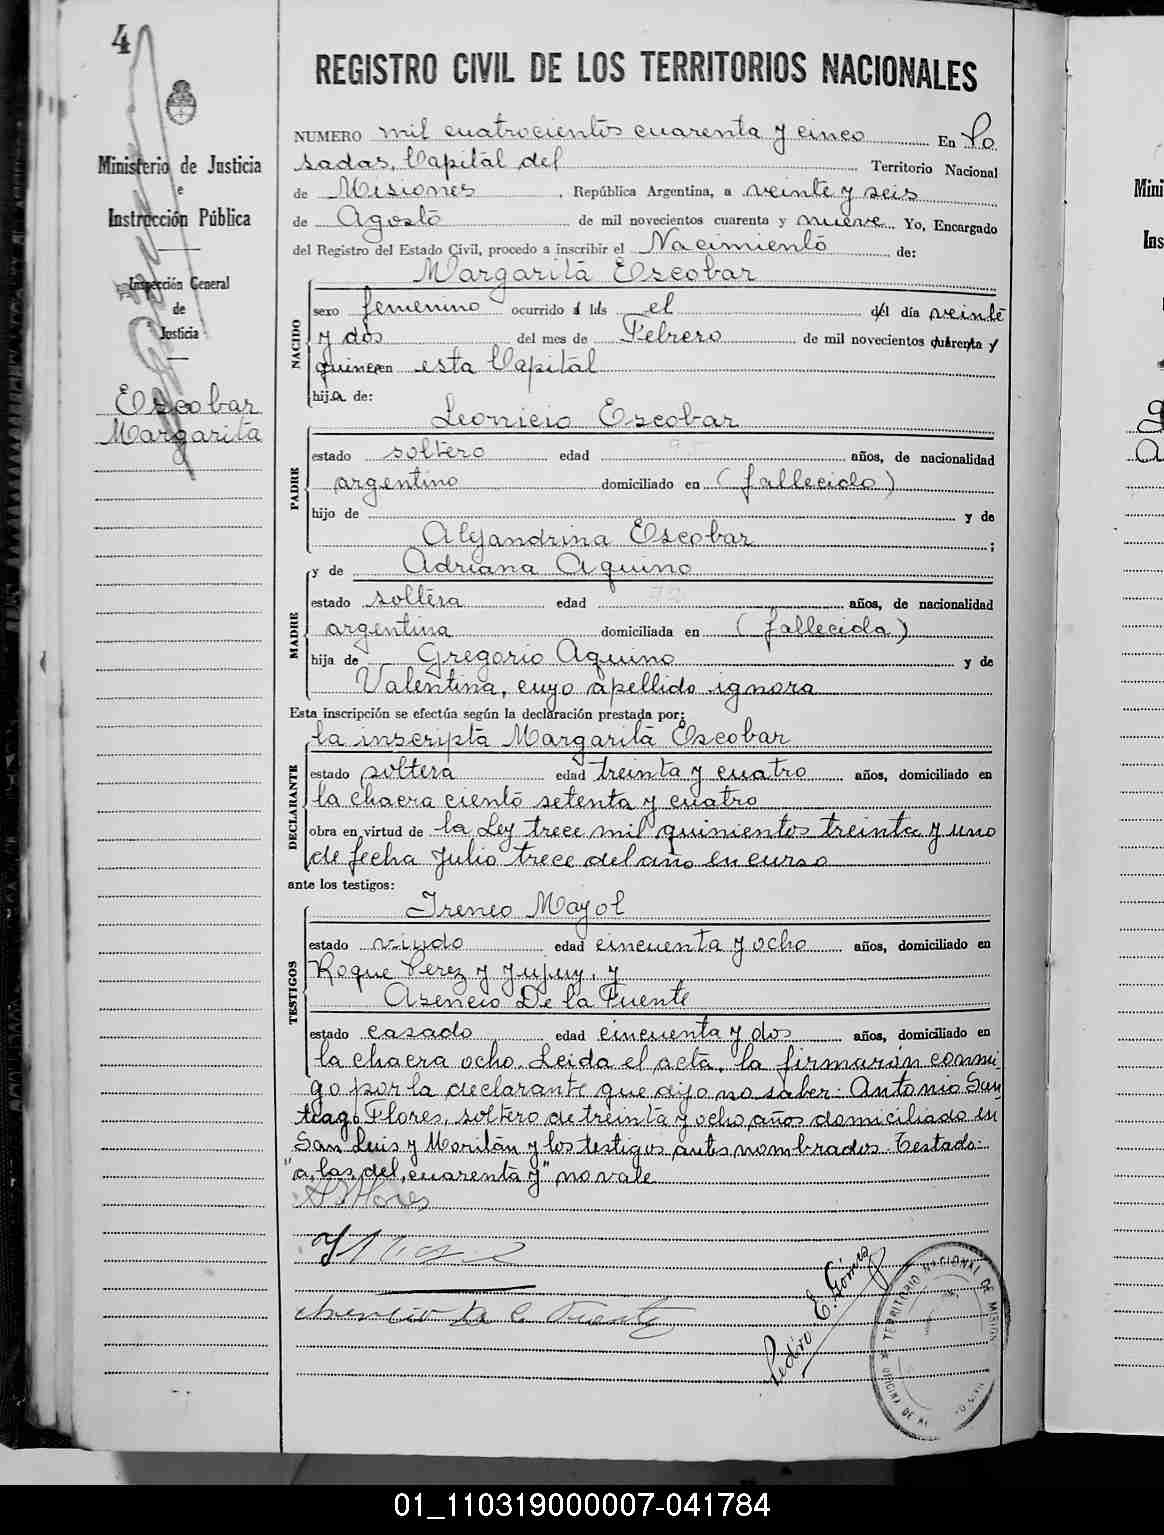 4
Ministerio de Justicia
e
Instrucción Pública
Inspección General
de
Justicia
Escobar
Margarita
REGISTRO CIVIL DE LOS TERRITORIOS NACIONALES
NUMERO mil cuatrocientos cuarenta y cinco En Po
sadas, Capital del Territorio Nacional
de Misiones, República Argentina, a veinte y seis
de Agosto de mil novecientos cuarenta y nueve Yo, Encargado
del Registro del Estado Civil, procedo a inscribir el Nacimiento de:
Margarita Escobar
NACIDO
sexo femenino ocurrido a las el del día veinte
y dos del mes de Febrero de mil novecientos cuarenta y
quince en esta Capital
hija de:
Leonicio Escobar
PADRE
estado soltero edad años, de nacionalidad
argentino domiciliado en (fallecido)
hijo de y de
Alejandrina Escobar ;
y de Adriana Aquino
MADRE
estado soltera edad años, de nacionalidad
argentina domiciliada en (fallecida)
hija de Gregorio Aquino y de
Valentina, cuyo apellido ignora
Esta inscripción se efectúa según la declaración prestada por:
la inscripta Margarita Escobar
DECLARANTE
estado soltera edad treinta y cuatro años, domiciliado en
la chacra ciento setenta y cuatro
obra en virtud de la Ley trece mil quinientos treinta y uno
de fecha Julio trece del año en curso
ante los testigos:
Ireneo Mayol
TESTIGOS
estado viudo edad cincuenta y ocho años, domiciliado en
Roque Perez y Jujuy, y
Asencio De la Fuente
estado casado edad cincuenta y dos años, domiciliado en
la chacra ocho. Leida el acta, la firmarón conmi-
go por la declarante que dijo no saber: Antonio San
tiago Flores, soltero de treinta y ocho años domiciliado en
San Luis y Moritán y los testigos antes nombrados. Testado:
"a, las, del, cuarenta y" no vale
A S Flores
Asencio De la Fuente
Pedro E. Gómez
TERRITORIO NACIONAL DE MISIONES
OFICINA DE
Mini
Ins
01_110319000007-041784